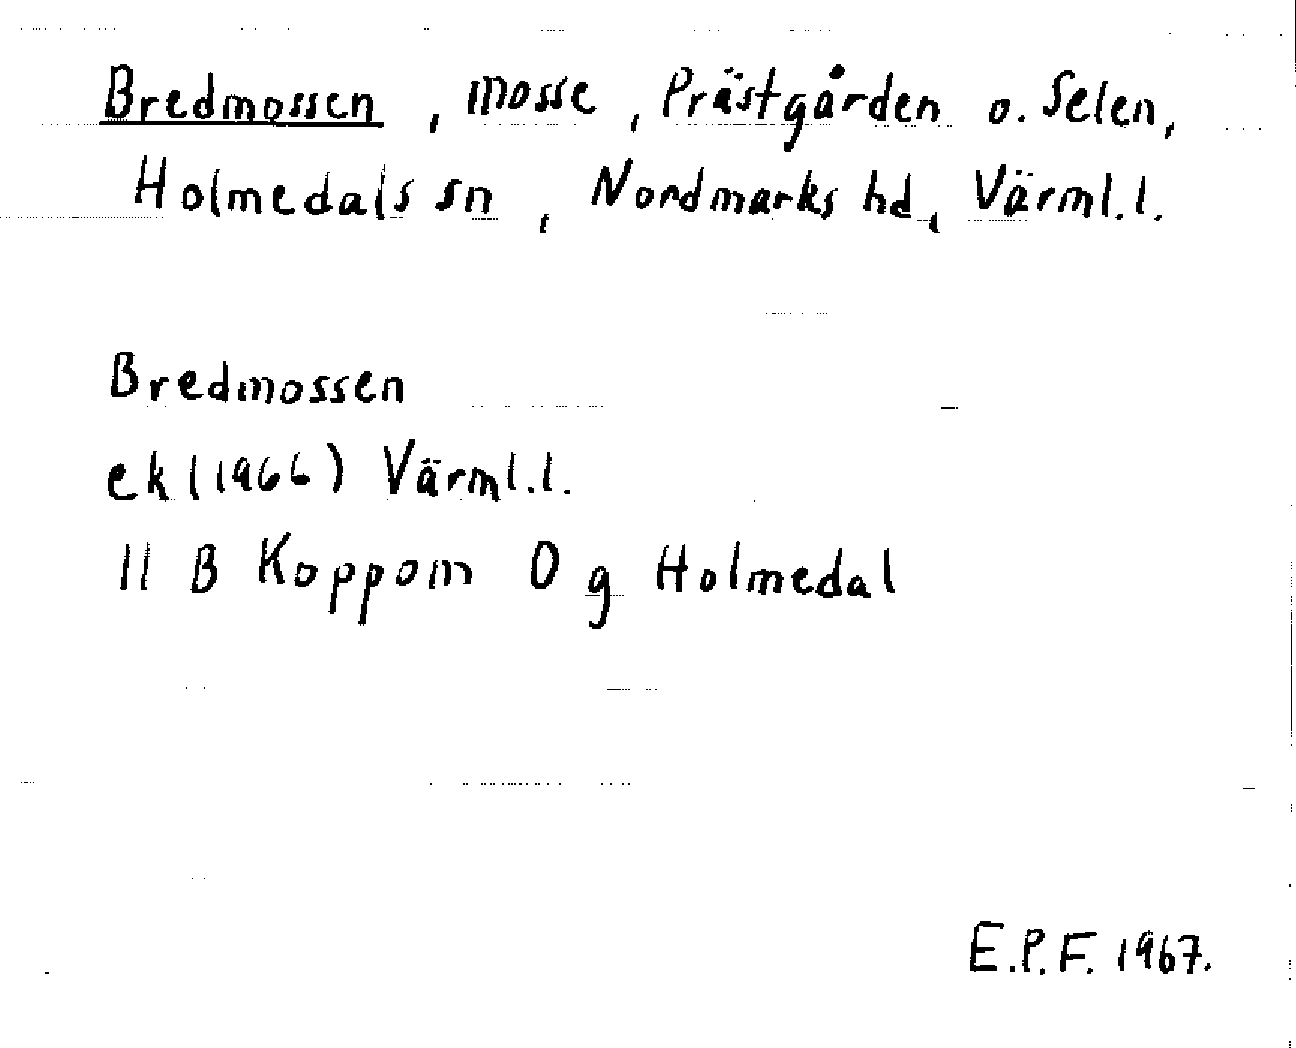 Bredmossen, mosse, Prästgården o. Selen,
Holmedals sn, Nordmarks hd, Värml.l.
Bredmossen
ek (1966) Värml.l.
11 B Koppom 0 g Holmedal
E.P.F. 1967.